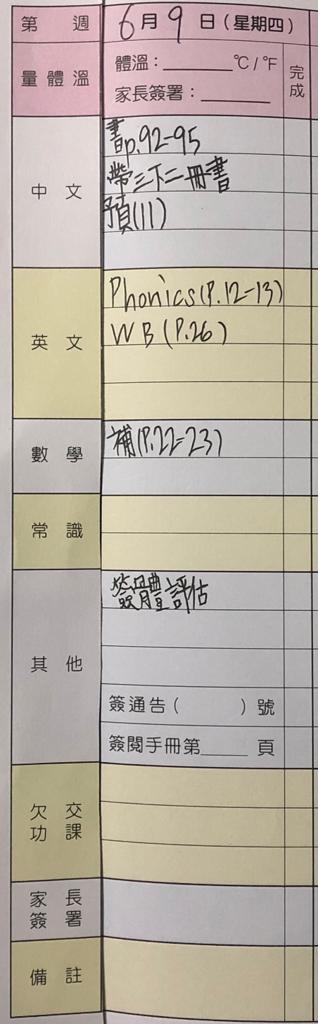 第 週 6月9日(星期四)
量體溫 體溫：______℃/℉ 完成
家長簽署：______
中文 書p.92-95
帶三下二冊書
預(11)
英文 Phonics(P.12-13)
WB(P.26)
數學 補(P.22-23)
常識
其他 簽體評估
簽通告( )號
簽閱手冊第____頁
欠交功課
家長簽署
備註